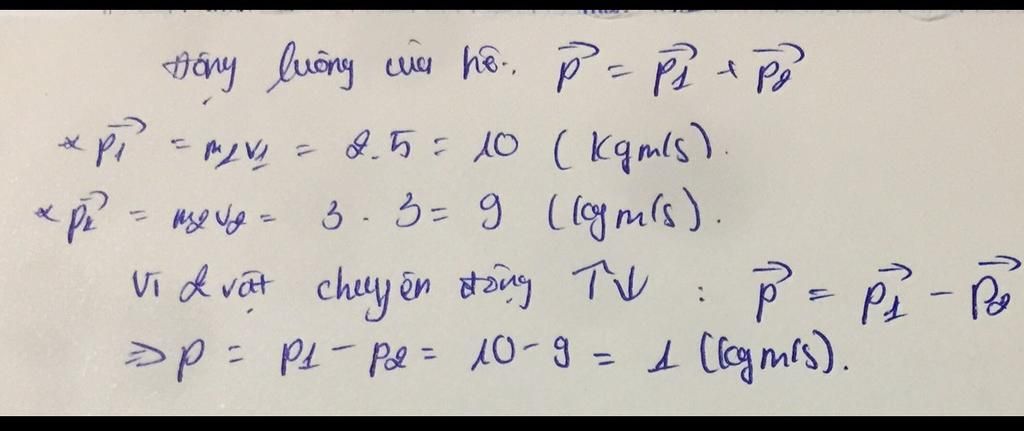 Động lượng của hệ: p⃗ = p⃗1 + p⃗2
* p⃗1 = m1v1 = 2.5 = 10 (Kgm/s).
* p⃗2 = m2v2 = 3 . 3 = 9 (kgm/s).
Vì 2 vật chuyển động ↑↓ : p⃗ = p⃗1 - p⃗2
=> p = p1 - p2 = 10 - 9 = 1 (kgm/s).